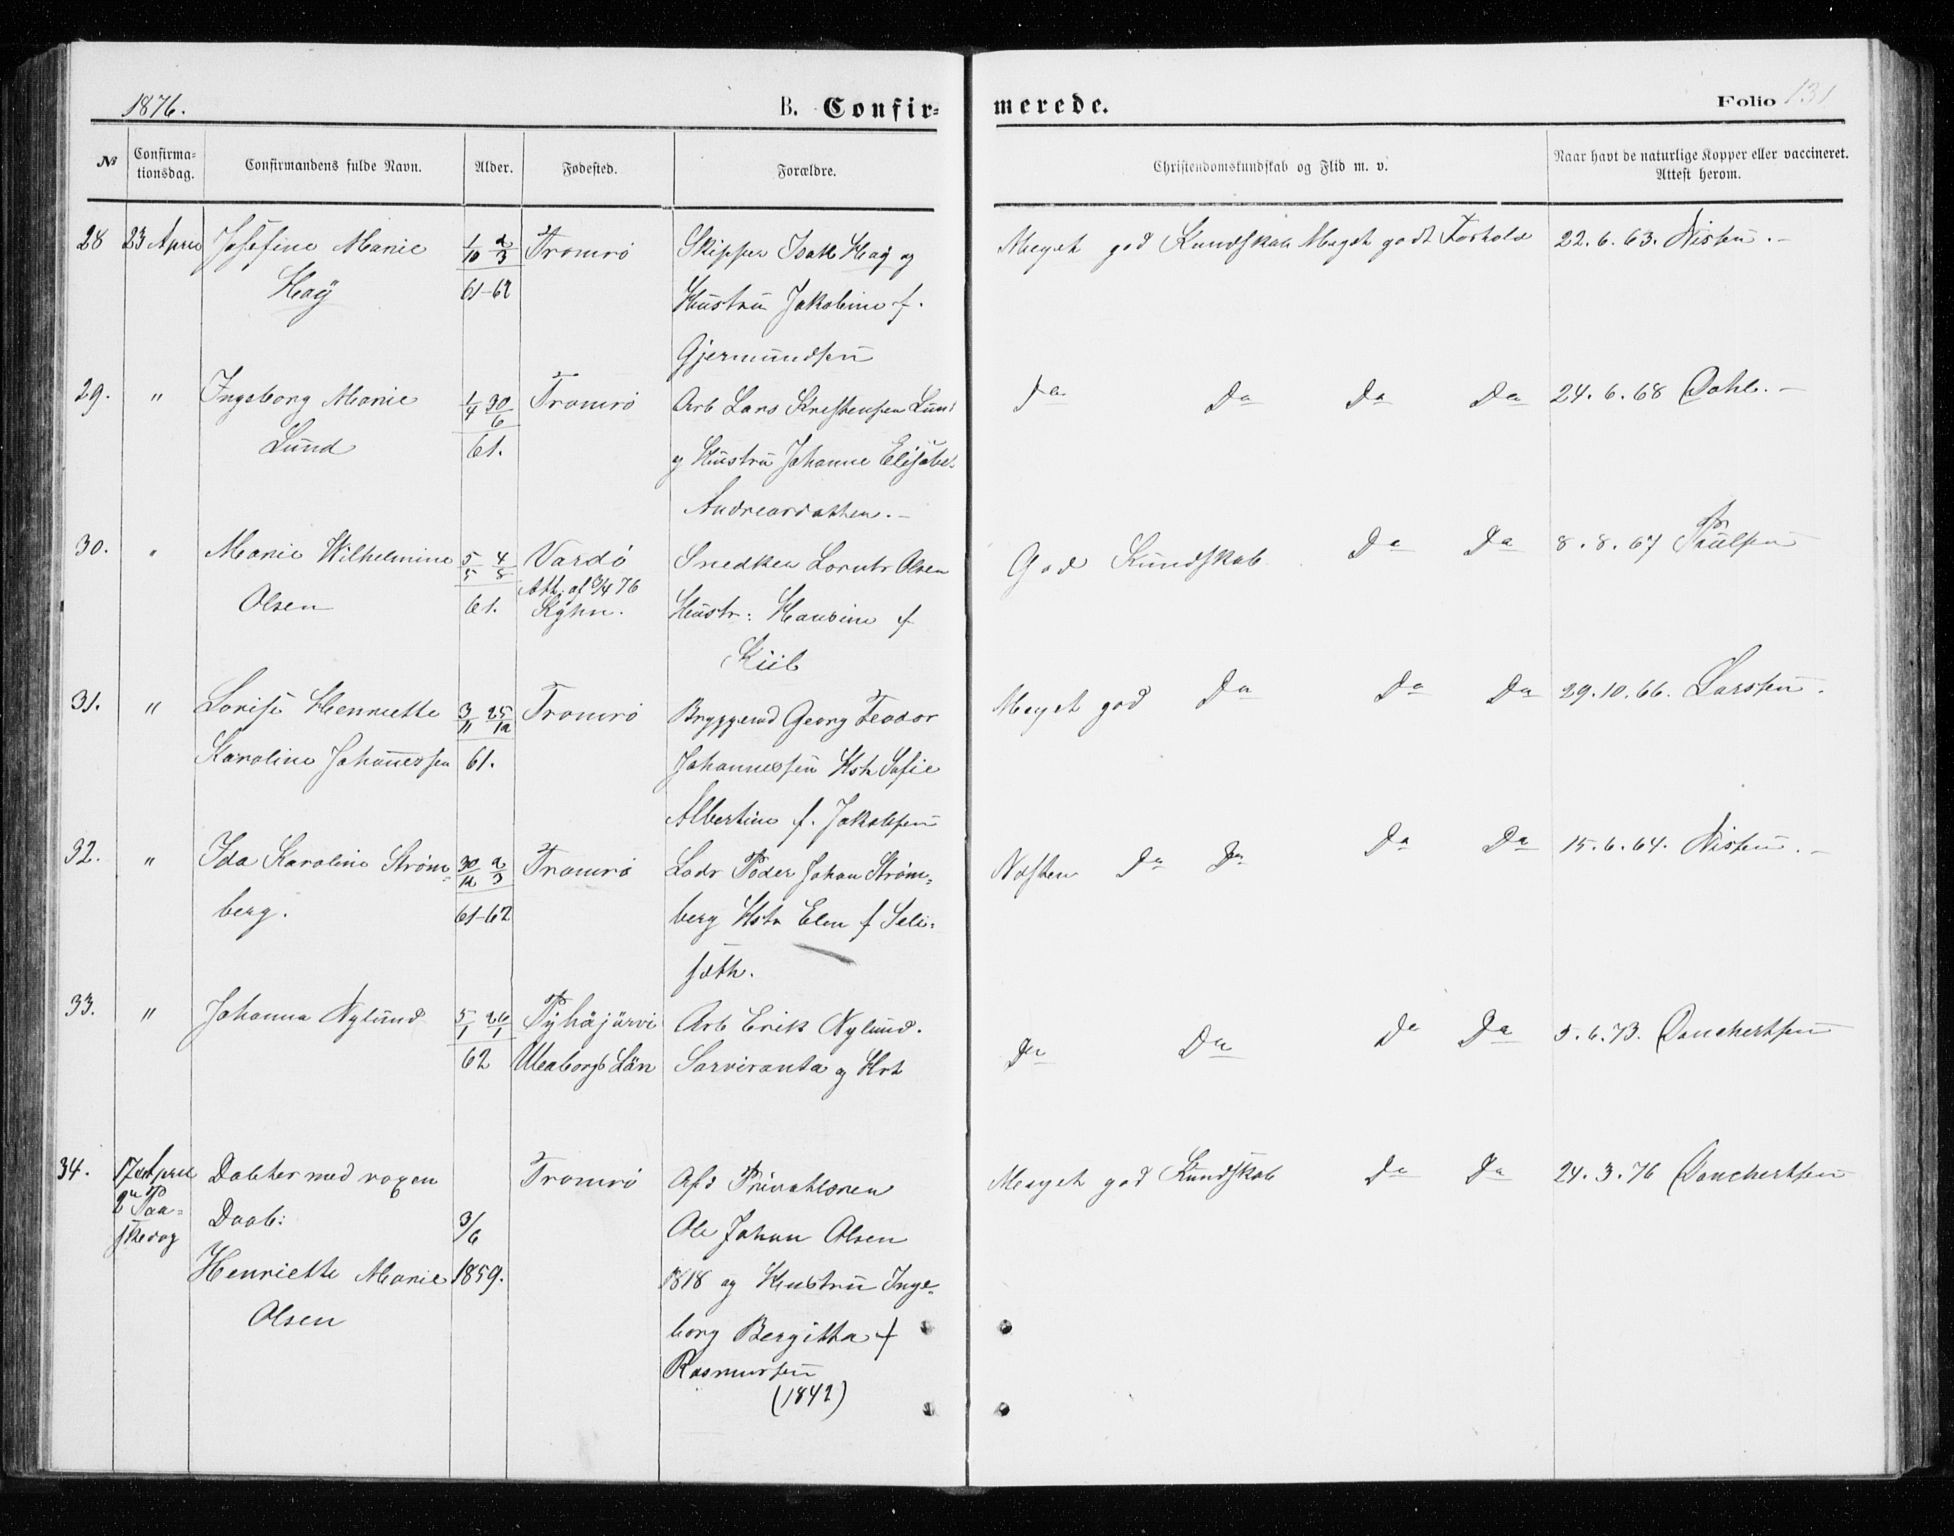 1876. B. Confir- merede. Folio 131
№ Confirma- tionsdag. Confirmandens fulde Navn. Alder. Fødested. Forældre. Christendomskundskab og Flid m. v. Naar havt de naturlige Kopper eller vaccineret. Attest herom.
28 23 April Josefine Marie 1/10 2/3 Tromsø Skipper Isak Haÿ og Meget god Kundskab Meget godt Forhold 22.6.63. Nissen.-
Haÿ 61-62 Hustru Jakobine f.
Gjermundsen
29. " Ingeborg Marie 1/4 30/6 Tromsø Arb Lars Kristensen Lund Do Do Do Do 24.6.68 Dahl.-
Lund 61. og Hustru Johanne Elisabet
Andreasdatter.-
30. " Marie Wilhelmine 5/5 4/8 Vardö Snedker Lorntz Olsen God Kundskab Do Do 8.8.67 Paulsen
Att. af 3/4 76
Olsen 61. Kÿhn. Hustr: Hansine f
Kiil
31. " Lovise Henriette 3/11 25/12 Tromsø Bryggemd Georg Teodor Meget god Do Do Do 29.10.66. Larsen.
Karoline Johannessen 61. Johannessen Hst Sofie
Albertine f. Jakobsen
32. " Ida Karoline Strøm- 30/12 2/3 Tromsø Lods Peder Johan Strøm- Næsten Do Do Do Do 15.6.64. Nissen.-
berg. 61-62 berg Hstr Elen f Seli-
sæth.
33. " Johanna Nylund 5/1 26/1 Pÿhäjärvi Arb Erik Nylund. Do Do Do Do 5.6.73. Danchertsen
62 Uleaborgs Län Sarviranta og Hst
34. 17de April Døbter med voxen Tromsø Afd Privatlærer Meget god Kundskab Do Do 24.3.76 Danchertsen
2n Paa-
skedag Daab: 3/6 Ole Johan Olsen
Henriette Marie 1859. 1818 og Hustru Inge-
Olsen borg Bergitta f
Rasmussen
(1842)